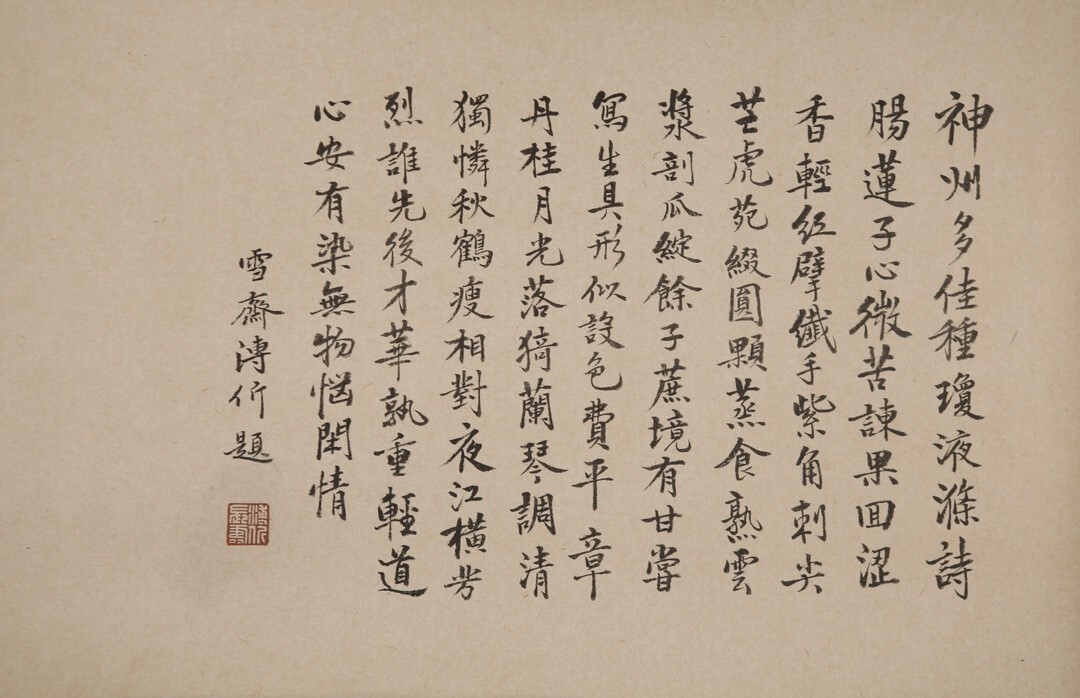 神州多佳種瓊液滌詩
腸蓮子心微苦諫果囬澀
香輕紅擘纖手紫角刺尖
芒虎苑綴圓顆蒸食熟雲
漿剖瓜綻餘子蔗境有甘嘗
寫生具形似設色費平章
丹桂月光落猗蘭琴調清
獨憐秋鶴瘦相對夜江橫芳
烈誰先後才華孰重輕道
心安有染無物惱閑情
雪齋溥伒題